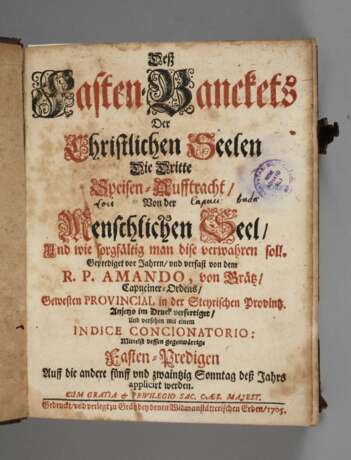 Deß
Fasten-Banckets
Der
Christlichen Seelen
Die Dritte
Speisen-Aufftracht/
Von der
Menschlichen Seel/
Und wie sorgfältig man dise verwahren soll.
Geprediget vor Jahren/ und verfast von dem
R. P. AMANDO, von Grätz/
Capuciner-Ordens/
Gewesten PROVINCIAL in der Steyrischen Provintz.
Anjetzo im Druck verfertiget/
Und versehen mit einem
INDICE CONCIONATORIO:
Mittelst dessen gegenwärtige
Fasten-Predigen
Auff die andere fünff und zwaintzig Sonntag deß Jahrs
applicirt werden.
CUM GRATIA & PRIVILEGIO SAC. CAES. MAJEST.
Gedruckt/ und verlegt zu Grätz bey denen Widmanstätterischen Erben/ 1705.